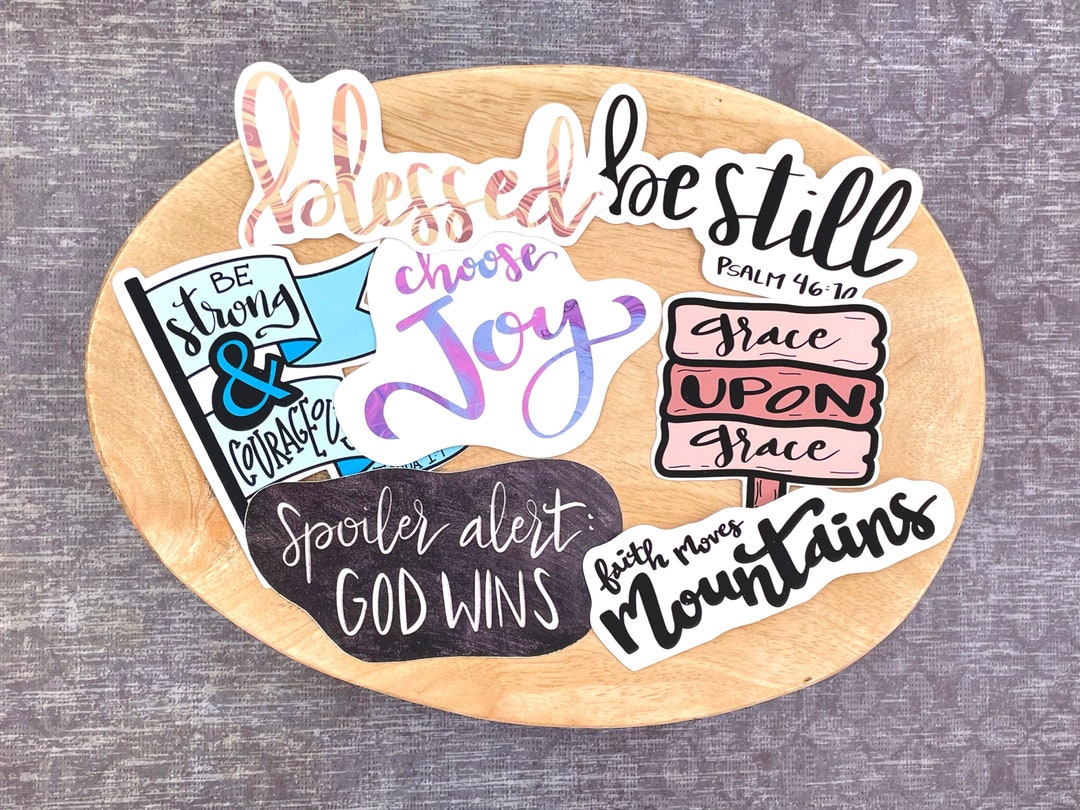 blessed
be still
PSALM 46:10
BE
strong
&
COURAGEOUS
choose
Joy
grace
UPON
grace
Spoiler alert:
GOD WINS
faith moves
Mountains